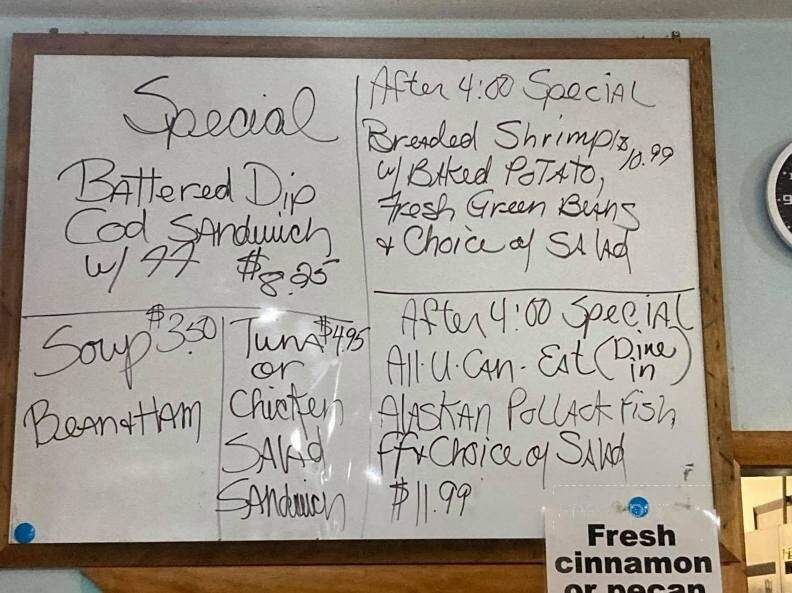 Special
Battered Dip
Cod Sandwich
w/ FF $8.25
Soup $3.50
Bean & Ham
Tuna $4.95
or
Chicken
Salad
Sandwich
After 4:00 Special
Breaded Shrimp $10.99
w/ Baked Potato,
Fresh Green Beans
& Choice of Salad
After 4:00 Special
All-U-Can-Eat (Dine in)
Alaskan Pollack Fish,
FF & Choice of Salad
$11.99
Fresh
cinnamon
or pecan
9